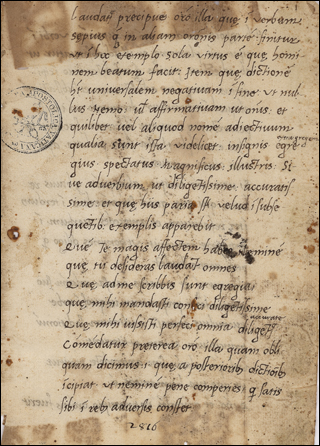 laudat precipue oro illa que i verbum
sepius q in aliam oronis parte finitur
ut i hoc exemplo sola virtus e que homi
nem beatum facit Item que dictione
ht universalem negativam i fine ut nul
lus Nemo ul affirmativam ut onis et
quilibet vel aliquod nome adiectivum
qualia sunt ista videlicet insignis egre
gius spectatus Magnificus illustris Si
ve adverbium ut diligetissime accuratis
sime et que his paria st velud i subse
quetib exemplis apparebit
Que te magis affectem habe nemine
que tu desideras laudat omnes
Que ad me scribis sunt egregia
que mihi mandasti confeci diligetissime
Que mihi iussisti perfeci omnia diligeti
Comedatur preterea oro illa quam obli
quam dicimus i que a posteriorib dictioib
icipiat ut nemine pene comperies q satis
sibi i reb adversis constet
2816